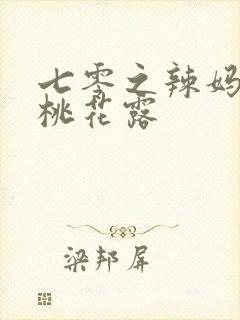 七零之辣妈
桃花露
梁邦屏